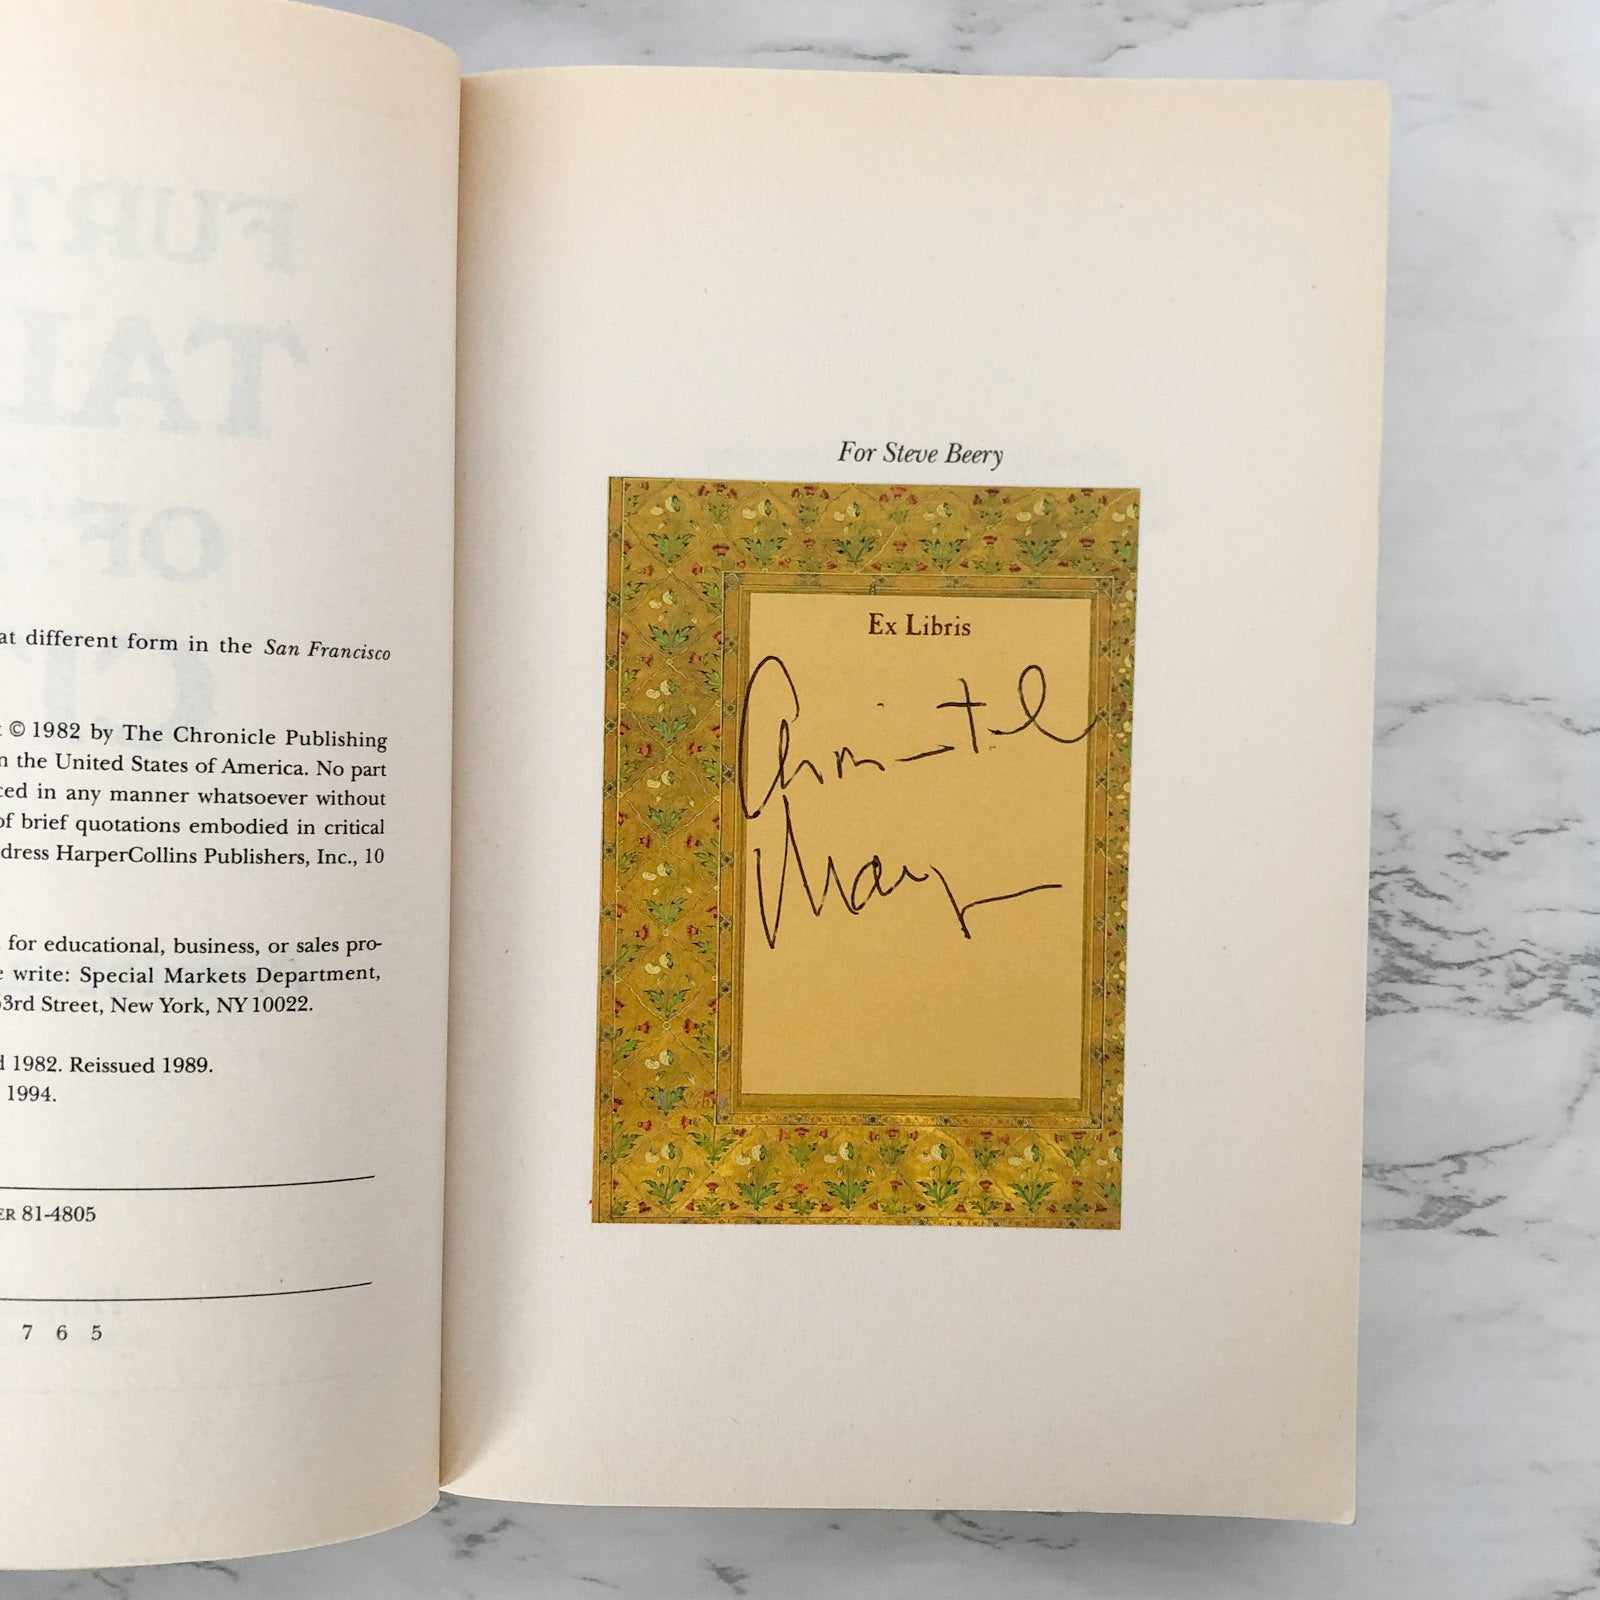 FURT
TAL
OF T
CI
at different form in the San Francisco
© 1982 by The Chronicle Publishing
n the United States of America. No part
ced in any manner whatsoever without
of brief quotations embodied in critical
dress HarperCollins Publishers, Inc., 10
for educational, business, or sales pro-
e write: Special Markets Department,
53rd Street, New York, NY 10022.
d 1982. Reissued 1989.
1994.
ER 81-4805
7 6 5
For Steve Beery
Ex Libris